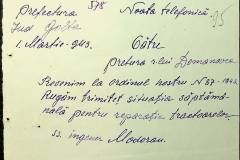 Prefectura 578 Noata telefonică 95
Jud Golta
1. Martie-943. Către
pretura r-lui Domanovca
Revenim la ordinul nostru N 57-1943
Rugăm trimiteți situația săptămâ-
nală pentru reparația tractoarelor
ss. inginer Modoran.